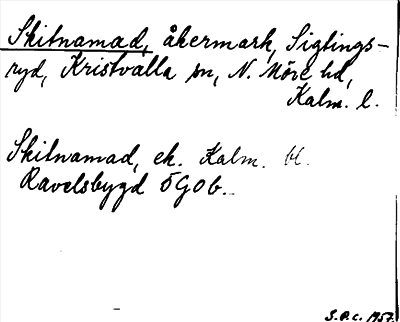 Skitnamad, åkermark, Siglings-
ryd, Kristvalla sn, N. Möre hd,
Kalm. l.
Skitnamad, ek. Kalm. H.
Ravelsbygd ÖGob.
S.P.C. 1957.